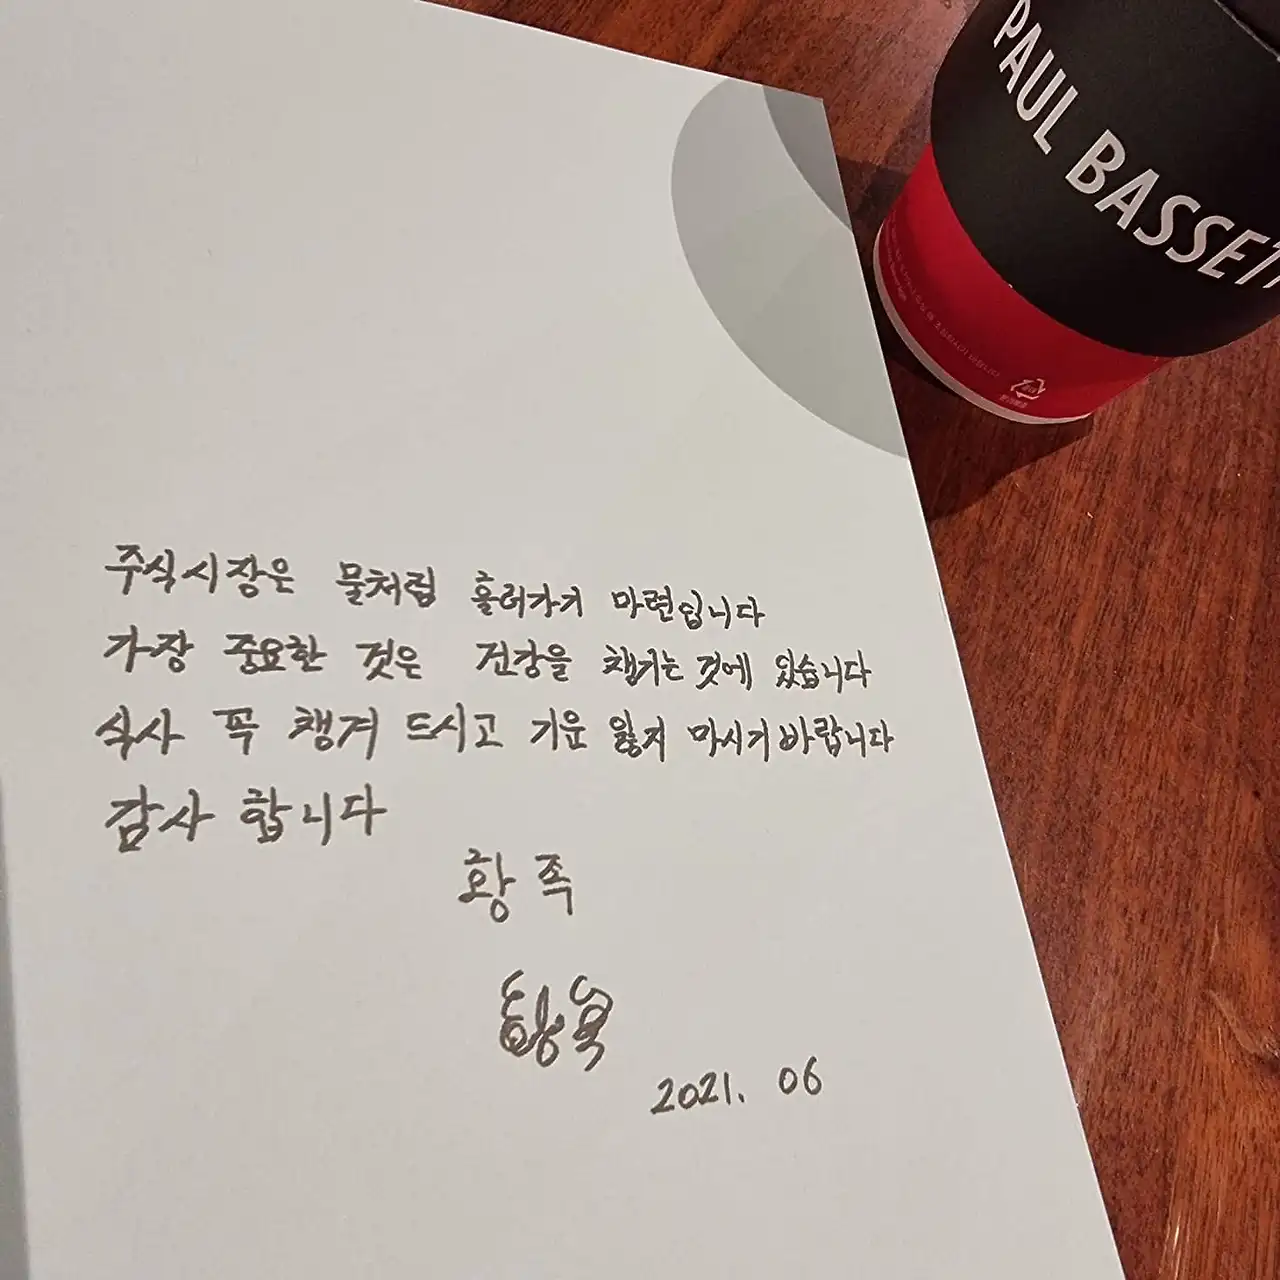 PAUL BASSETT
주식시장은 물처럼 흘러가기 마련입니다
가장 중요한 것은 건강을 챙기는 것에 있습니다
식사 꼭 챙겨 드시고 기운 잃지 마시기 바랍니다
감사 합니다
황 족
2021. 06